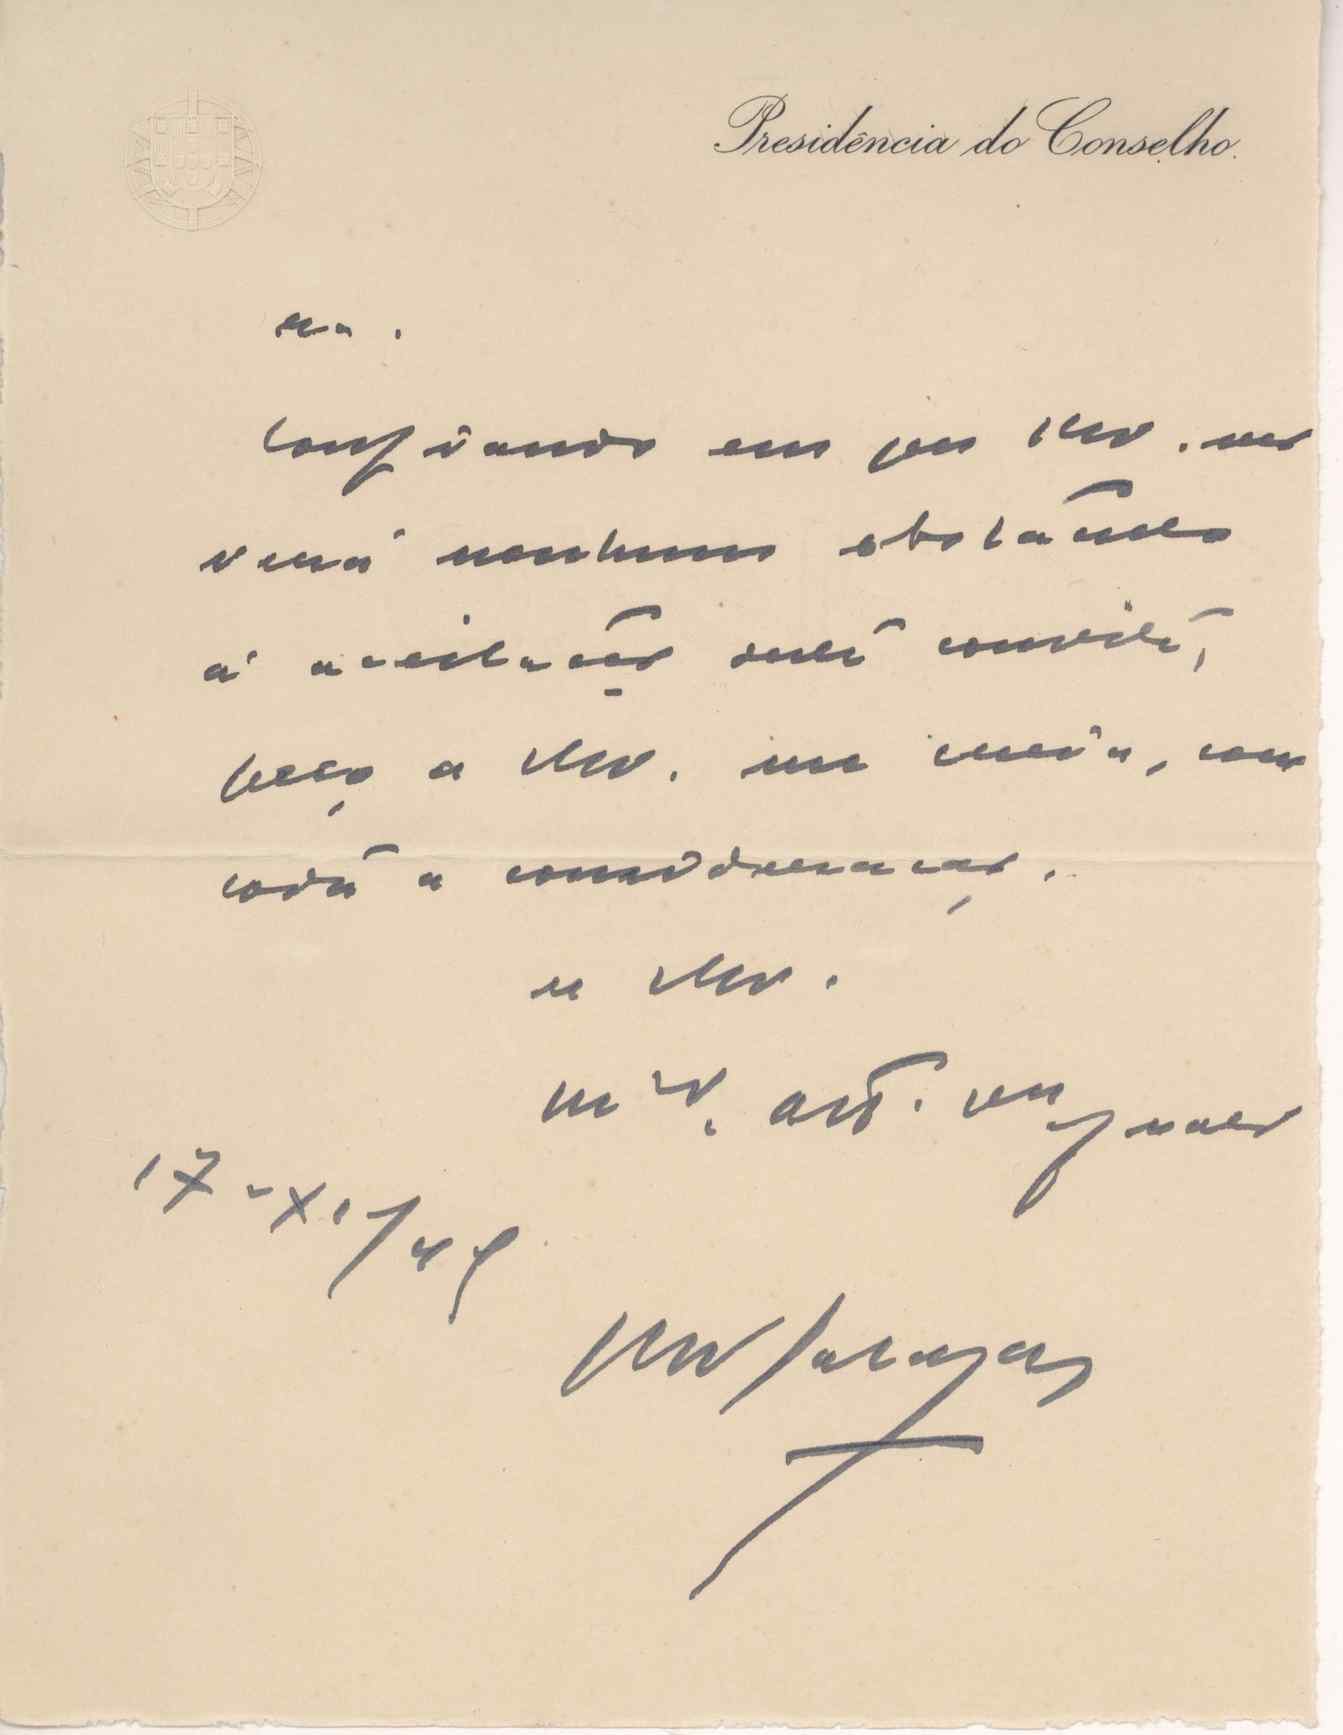 Presidência do Conselho.
Confiando em que V. não
verá nenhum obstáculo
à aceitação deste convite,
peço a V. me creia, com
toda a consideração.
de V.
mto. atto. ven
17-XI/49
Salazar